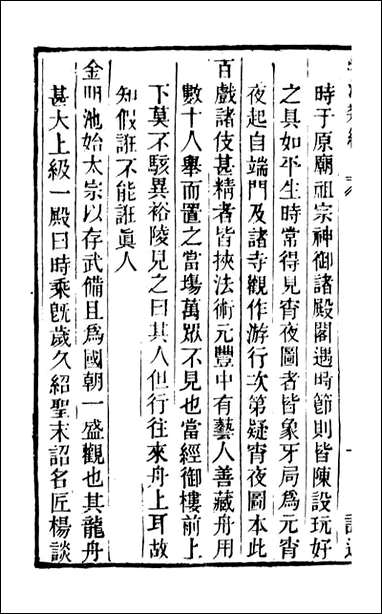 時于原廟祖宗神御諸殿閣遇時節則皆陳設玩好
之具如平生時常得見宵夜圖者皆象牙局爲元宵
夜起自端門及諸寺觀作游行次第疑宵夜圖本此
百戲諸伎甚精者皆挾法術元豐中有藝人善藏舟用
數十人舉而置之當塲萬眾不見也嘗經御樓前上
下莫不駭異裕陵見之曰其人但行往來舟上耳故
知假誑不能誑眞人
金明池始太宗以存武備且爲國朝一盛觀也其龍舟
甚大上級一殿曰時乘旣歲久紹聖末詔名匠楊談